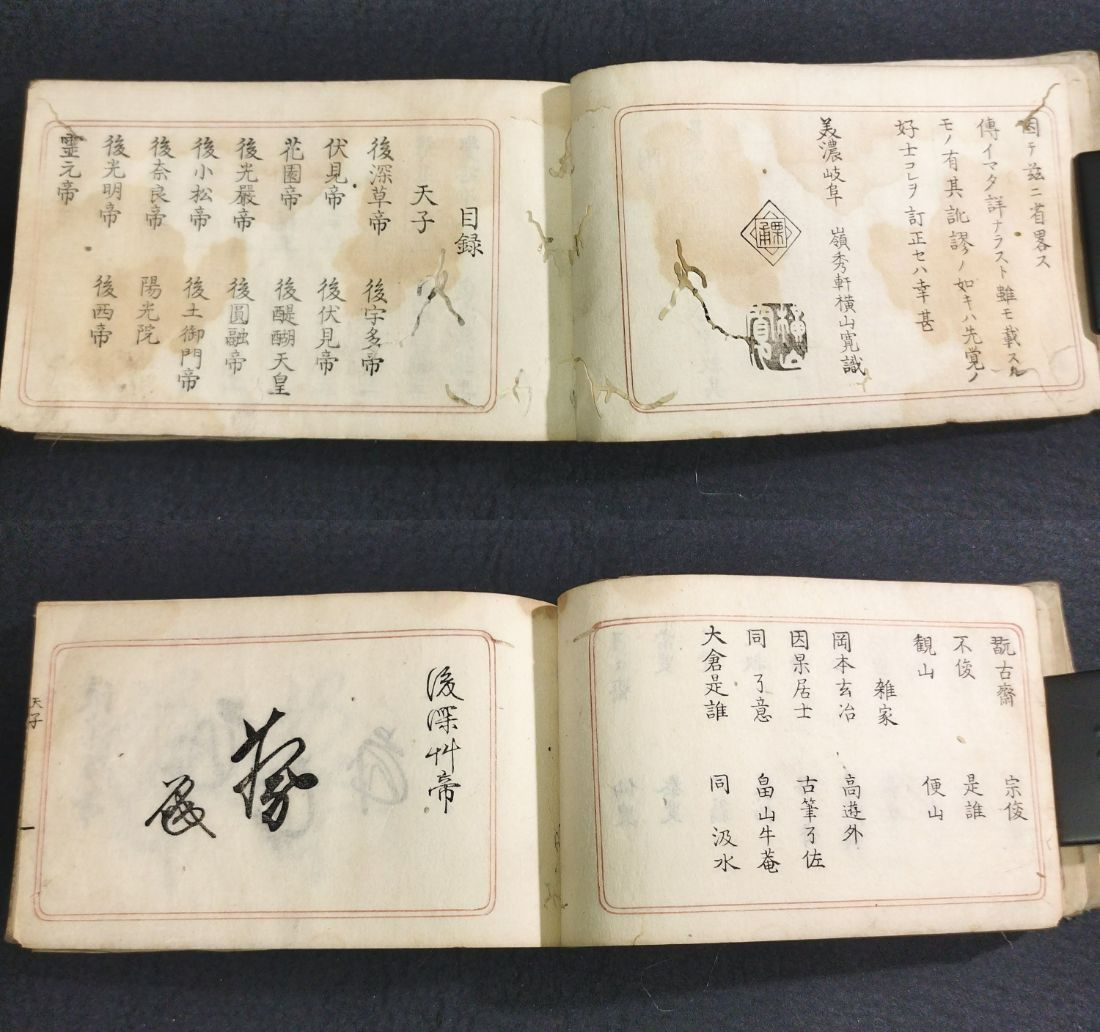 因テ茲ニ省畧ス
傳イマタ詳ナラスト雖モ載スル
モノ有其訛謬ノ如キハ先覚ノ
好士コレヲ訂正セハ幸甚
美濃岐阜 嶺秀軒横山寛識
目録
天子
後深草帝 後宇多帝
伏見帝 後伏見帝
花園帝 後醍醐天皇
後光嚴帝 後圓融帝
後小松帝 後土御門帝
後奈良帝 陽光院
後光明帝 後西帝
靈元帝
翫古齋 宗俊
不俊 是誰
観山 便山
雑家
岡本玄冶 高遊外
因果居士 古筆了佐
同了意 畠山牛菴
大倉是誰 同汲水
後深艸帝
天子